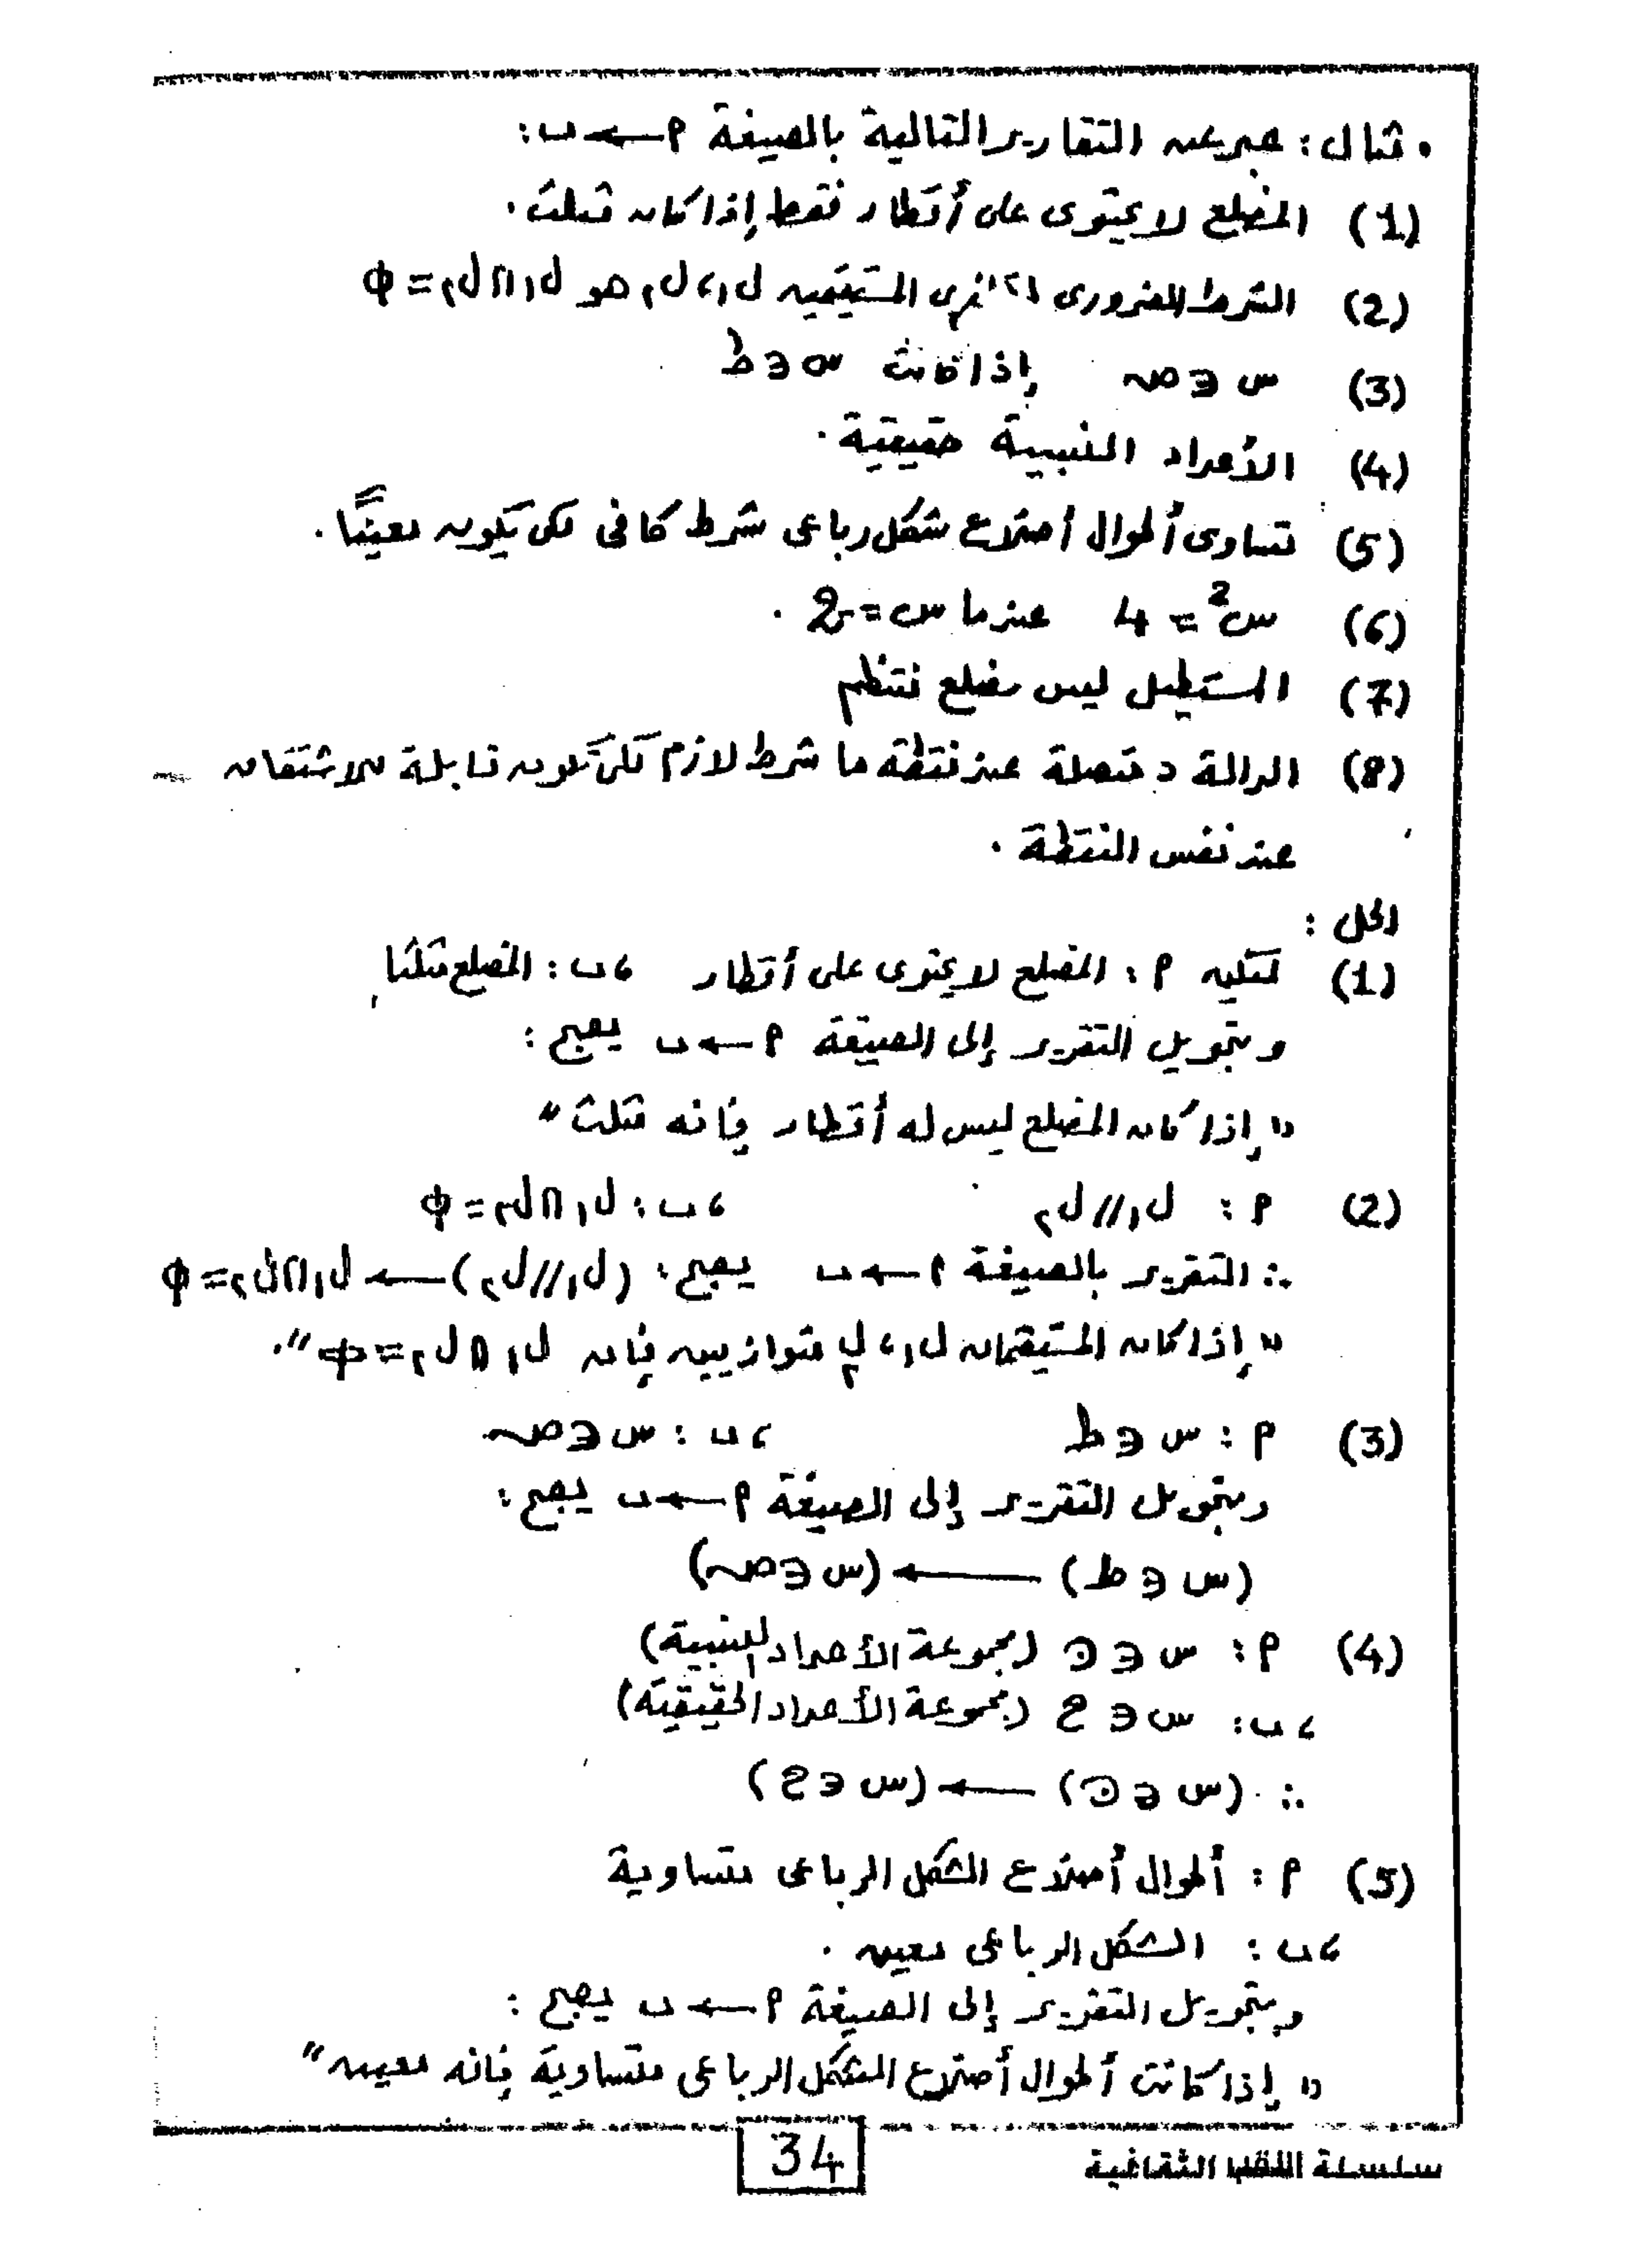 • مثال : عبر عن التقارير التالية بالصيغة م ← ب :
(1) المضلع لا يحتوى على أقطار فقط إذا كان مثلث .
(2) الشرط الضرورى لتوازى المستقيمين ل₁ ، ل₂ هو ل₁ ∩ ل₂ = ϕ
(3) س ∈ ص إذا كانت س ∈ ط
(4) الأعداد النسبية حقيقية .
(5) تساوى أطوال أضلاع شكل رباعى شرط كافى لكى يكون معيناً .
(6) س² = 4 عندما س = -2 .
(7) المستطيل ليس مضلع منتظم
(8) الدالة د متصلة عند نقطة ما شرط لازم لكى تكون قابلة للاشتقاق
عند نفس النقطة .
الحل :
(1) لتكن م : المضلع لا يحتوى على أقطار ، ب : المضلع مثلثا
وبتحويل التقرير إلى الصيغة م ← ب يصبح :
" إذا كان المضلع ليس له أقطار فإنه مثلث "
(2) م : ل₁ // ل₂ ، ب : ل₁ ∩ ل₂ = ϕ
∴ التقرير بالصيغة م ← ب يصبح : (ل₁ // ل₂) ← ل₁ ∩ ل₂ = ϕ
" إذا كان المستقيمان ل₁ ، ل₂ متوازيين فإن ل₁ ∩ ل₂ = ϕ " .
(3) م : س ∈ ط ، ب : س ∈ ص
وبتحويل التقرير إلى الصيغة م ← ب يصبح :
(س ∈ ط) ← (س ∈ ص)
(4) م : س ∈ ن (مجموعة الأعداد النسبية)
، ب : س ∈ ح (مجموعة الأعداد الحقيقية)
∴ (س ∈ ن) ← (س ∈ ح)
(5) م : أطوال أضلاع الشكل الرباعى متساوية
، ب : الشكل الرباعى معين .
وبتحويل التقرير إلى الصيغة م ← ب يصبح :
" إذا كانت أطوال أضلاع الشكل الرباعى متساوية فإنه معين "
34
سلسلة اللقاء الثقافية